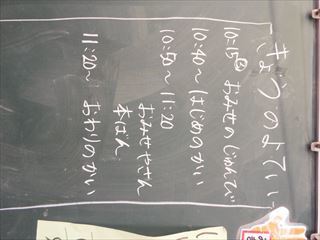 きょうのよてい
10:15〜 おみせのじゅんび
10:40〜 はじめのかい
10:50〜11:20
おみせやさん
本ばん
11:20〜 おわりのかい